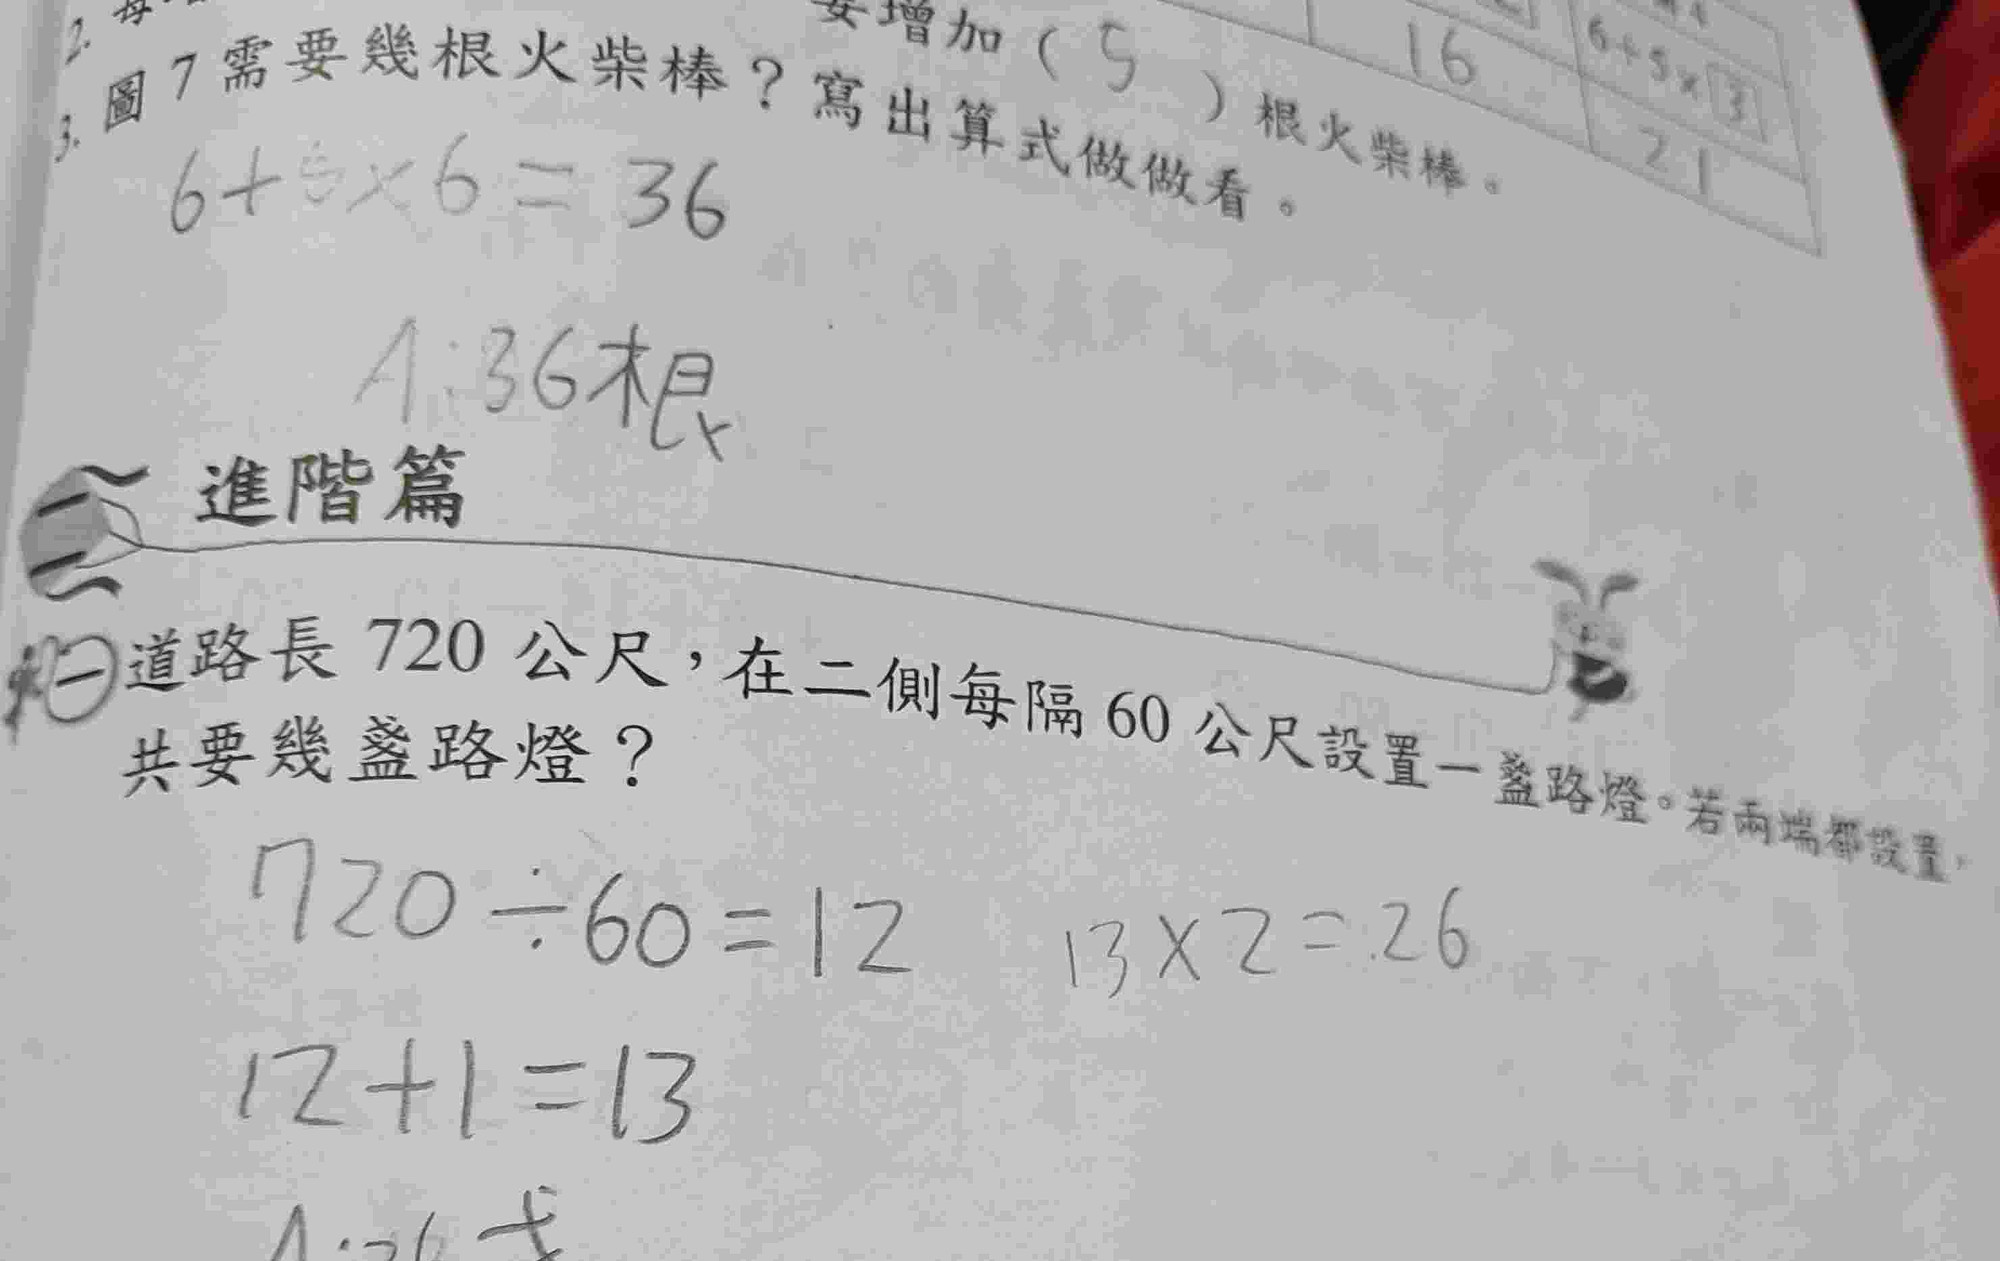 6+5×3
16
21
2. 每
要增加（5）根火柴棒。
3. 圖7需要幾根火柴棒？寫出算式做做看。
6+5×6=36
A:36根
進階篇
一 道路長 720 公尺，在二側每隔 60 公尺設置一盞路燈。若兩端都設置，
共要幾盞路燈？
720÷60=12 13×2=26
12+1=13
A:26